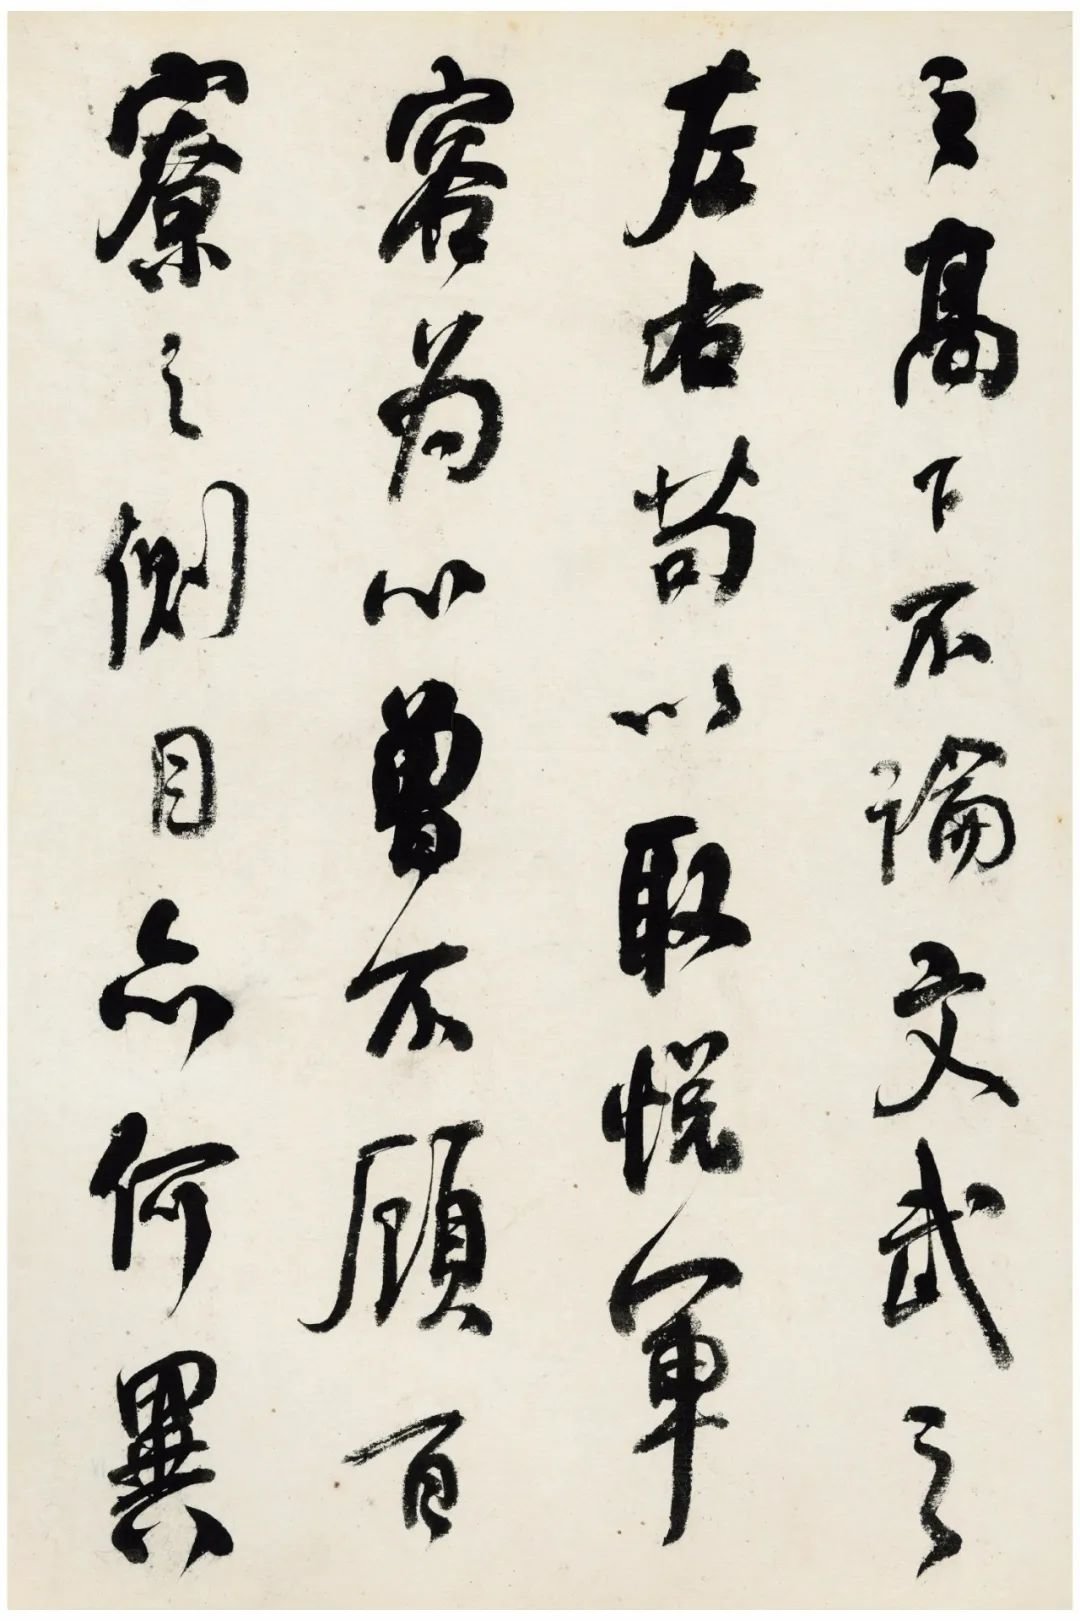 之高下不論文武之
左右苟以取悅軍
容為心曾不顧百
寮之側目亦何異